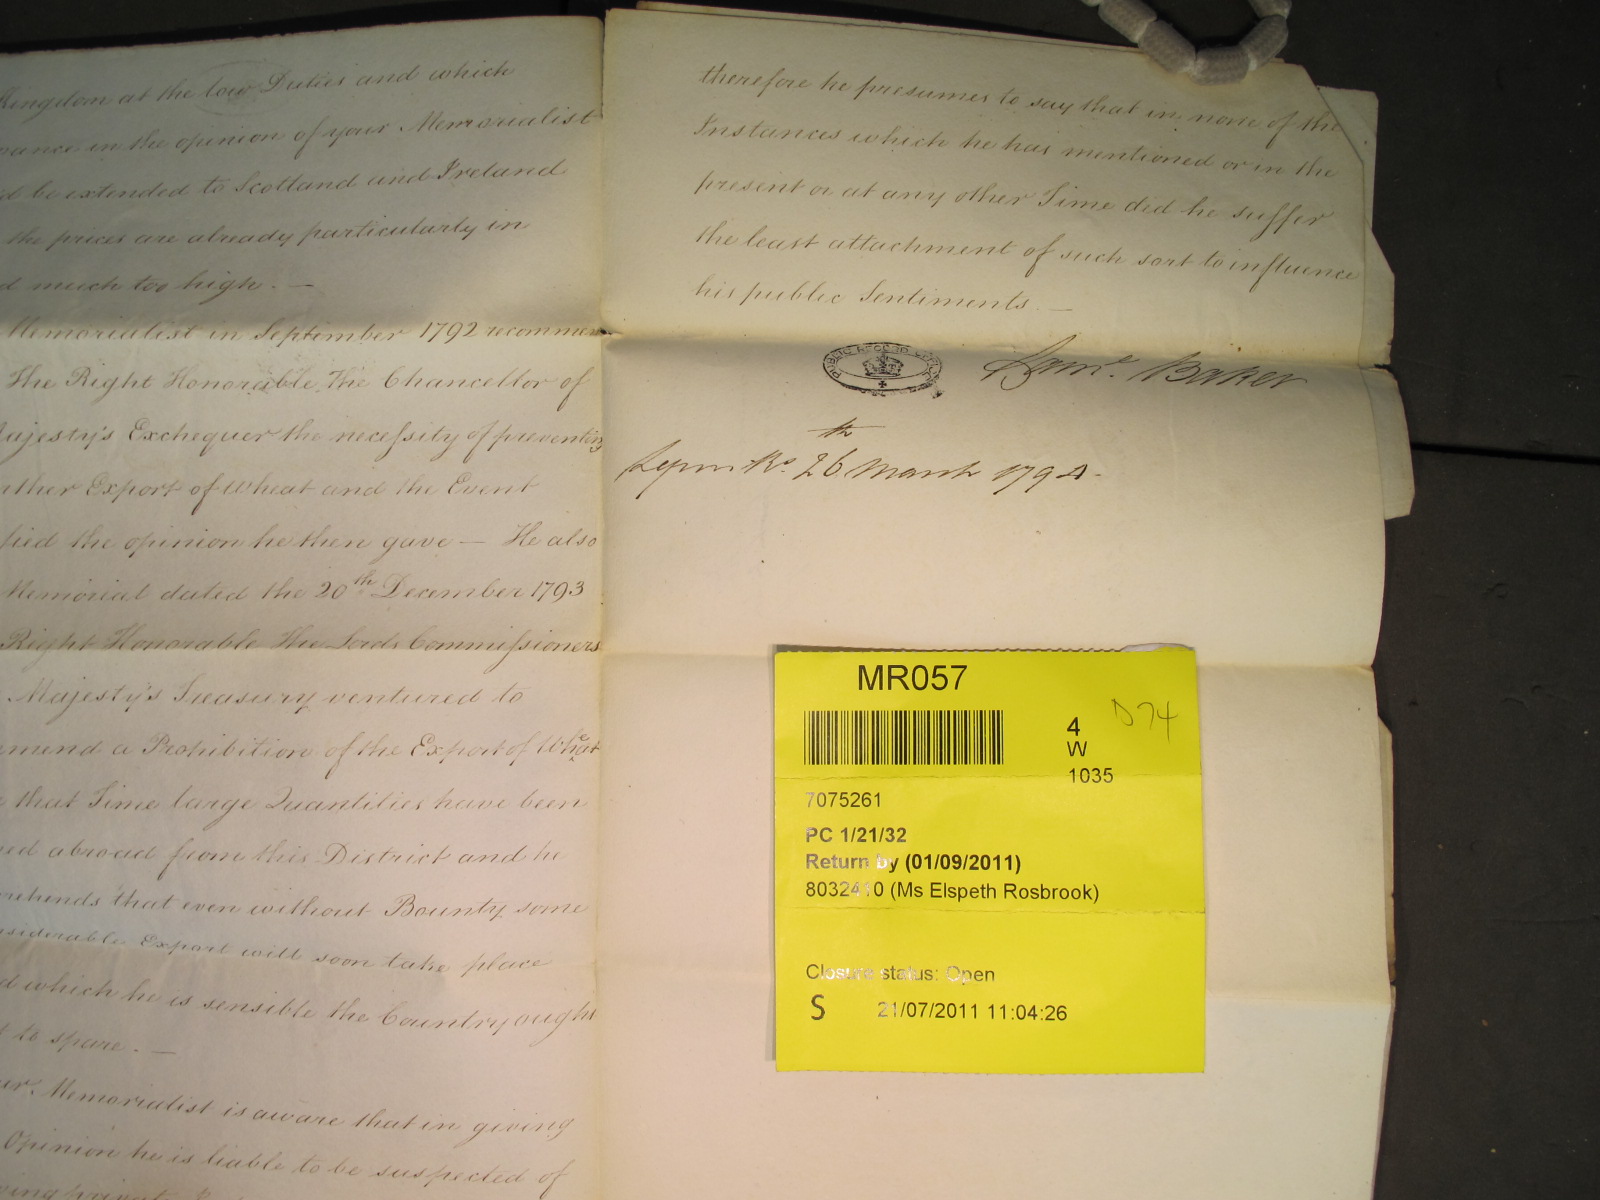 Kingdom at the low Duties and which
in the opinion of your Memorialist
be extended to Scotland and Ireland
the prices are already particularly in
much too high. —
Memorialist in September 1792 recommen
The Right Honorable The Chancellor of
Majesty's Exchequer the necessity of preventing
Export of Wheat and the Event
the opinion he then gave — He also
Memorial dated the 20th December 1793
Right Honorable The Lords Commissioners
Majesty's Treasury ventured to
a Prohibition of the Export of Wheat
that Time large Quantities have been
abroad from this District and he
that even without Bounty some
Export will soon take place
which he is sensible the Country ought
to spare. —
Memorialist is aware that in giving
Opinion he is liable to be suspected of
therefore he presumes to say that in none of the
Instances which he has mentioned or in the
present or at any other Time did he suffer
the least attachment of such sort to influence
his public Sentiments. —
PUBLIC RECORD OFFICE
Saml. Baker
26th March 1794.
MR057
D74
4
W
1035
7075261
PC 1/21/32
Return by (01/09/2011)
8032410 (Ms Elspeth Rosbrook)
Closure status: Open
S 21/07/2011 11:04:26